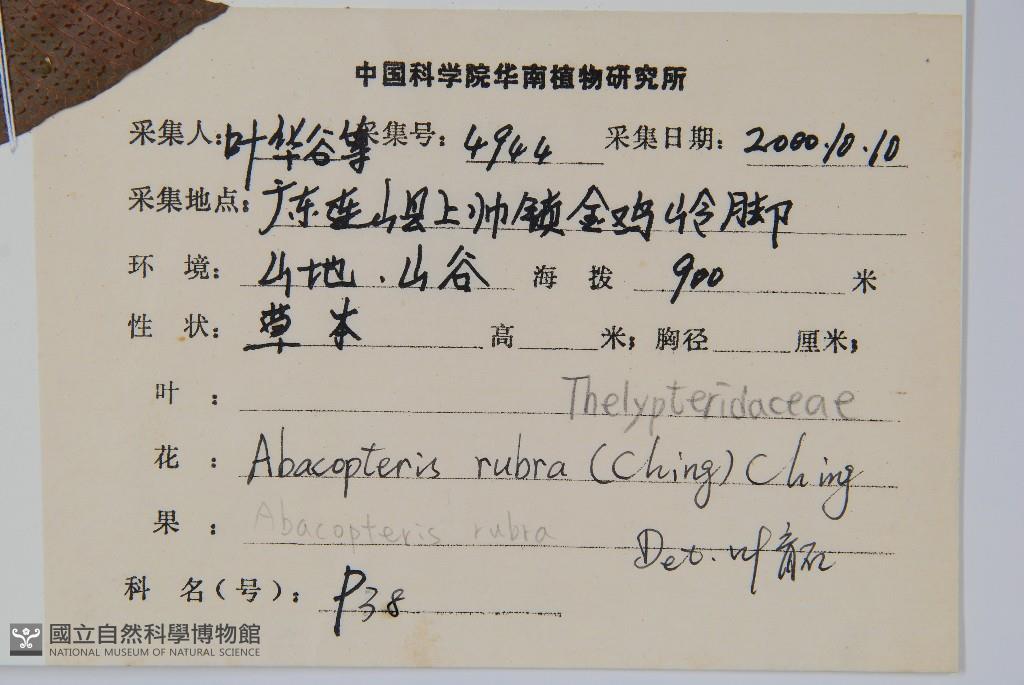 中国科学院华南植物研究所
采集人:叶华谷等 采集号: 4944 采集日期: 2000.10.10
采集地点: 广东连山县上帅锁金鸡岭脚
环 境: 山地.山谷 海 拨 900 米
性 状: 草本 高 米; 胸径 厘米;
叶 : Thelypteridaceae
花 : Abacopteris rubra (Ching) Ching
果 : Abacopteris rubra
Det. 叶育石
科 名(号): P38
國立自然科學博物館
NATIONAL MUSEUM OF NATURAL SCIENCE